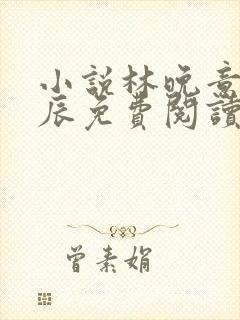 小說林晚意
辰免費閱讀
曾素娟